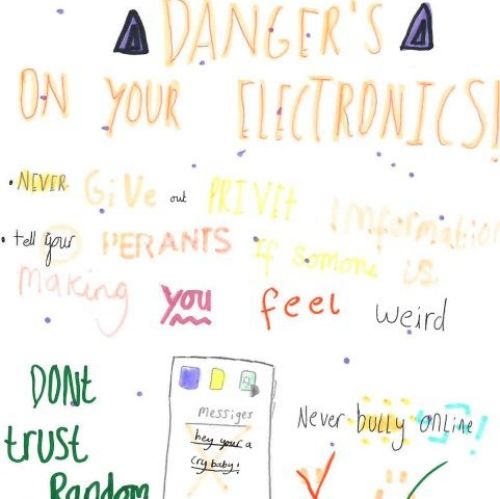 DANGER'S
ON YOUR ELECTRONICS!
• NEVER Give out PRIVET Information
• tell your PERANTS if somone is
making you feel weird
DONt
trust
Random
Messiges
hey your a
cry baby!
Never bully online!